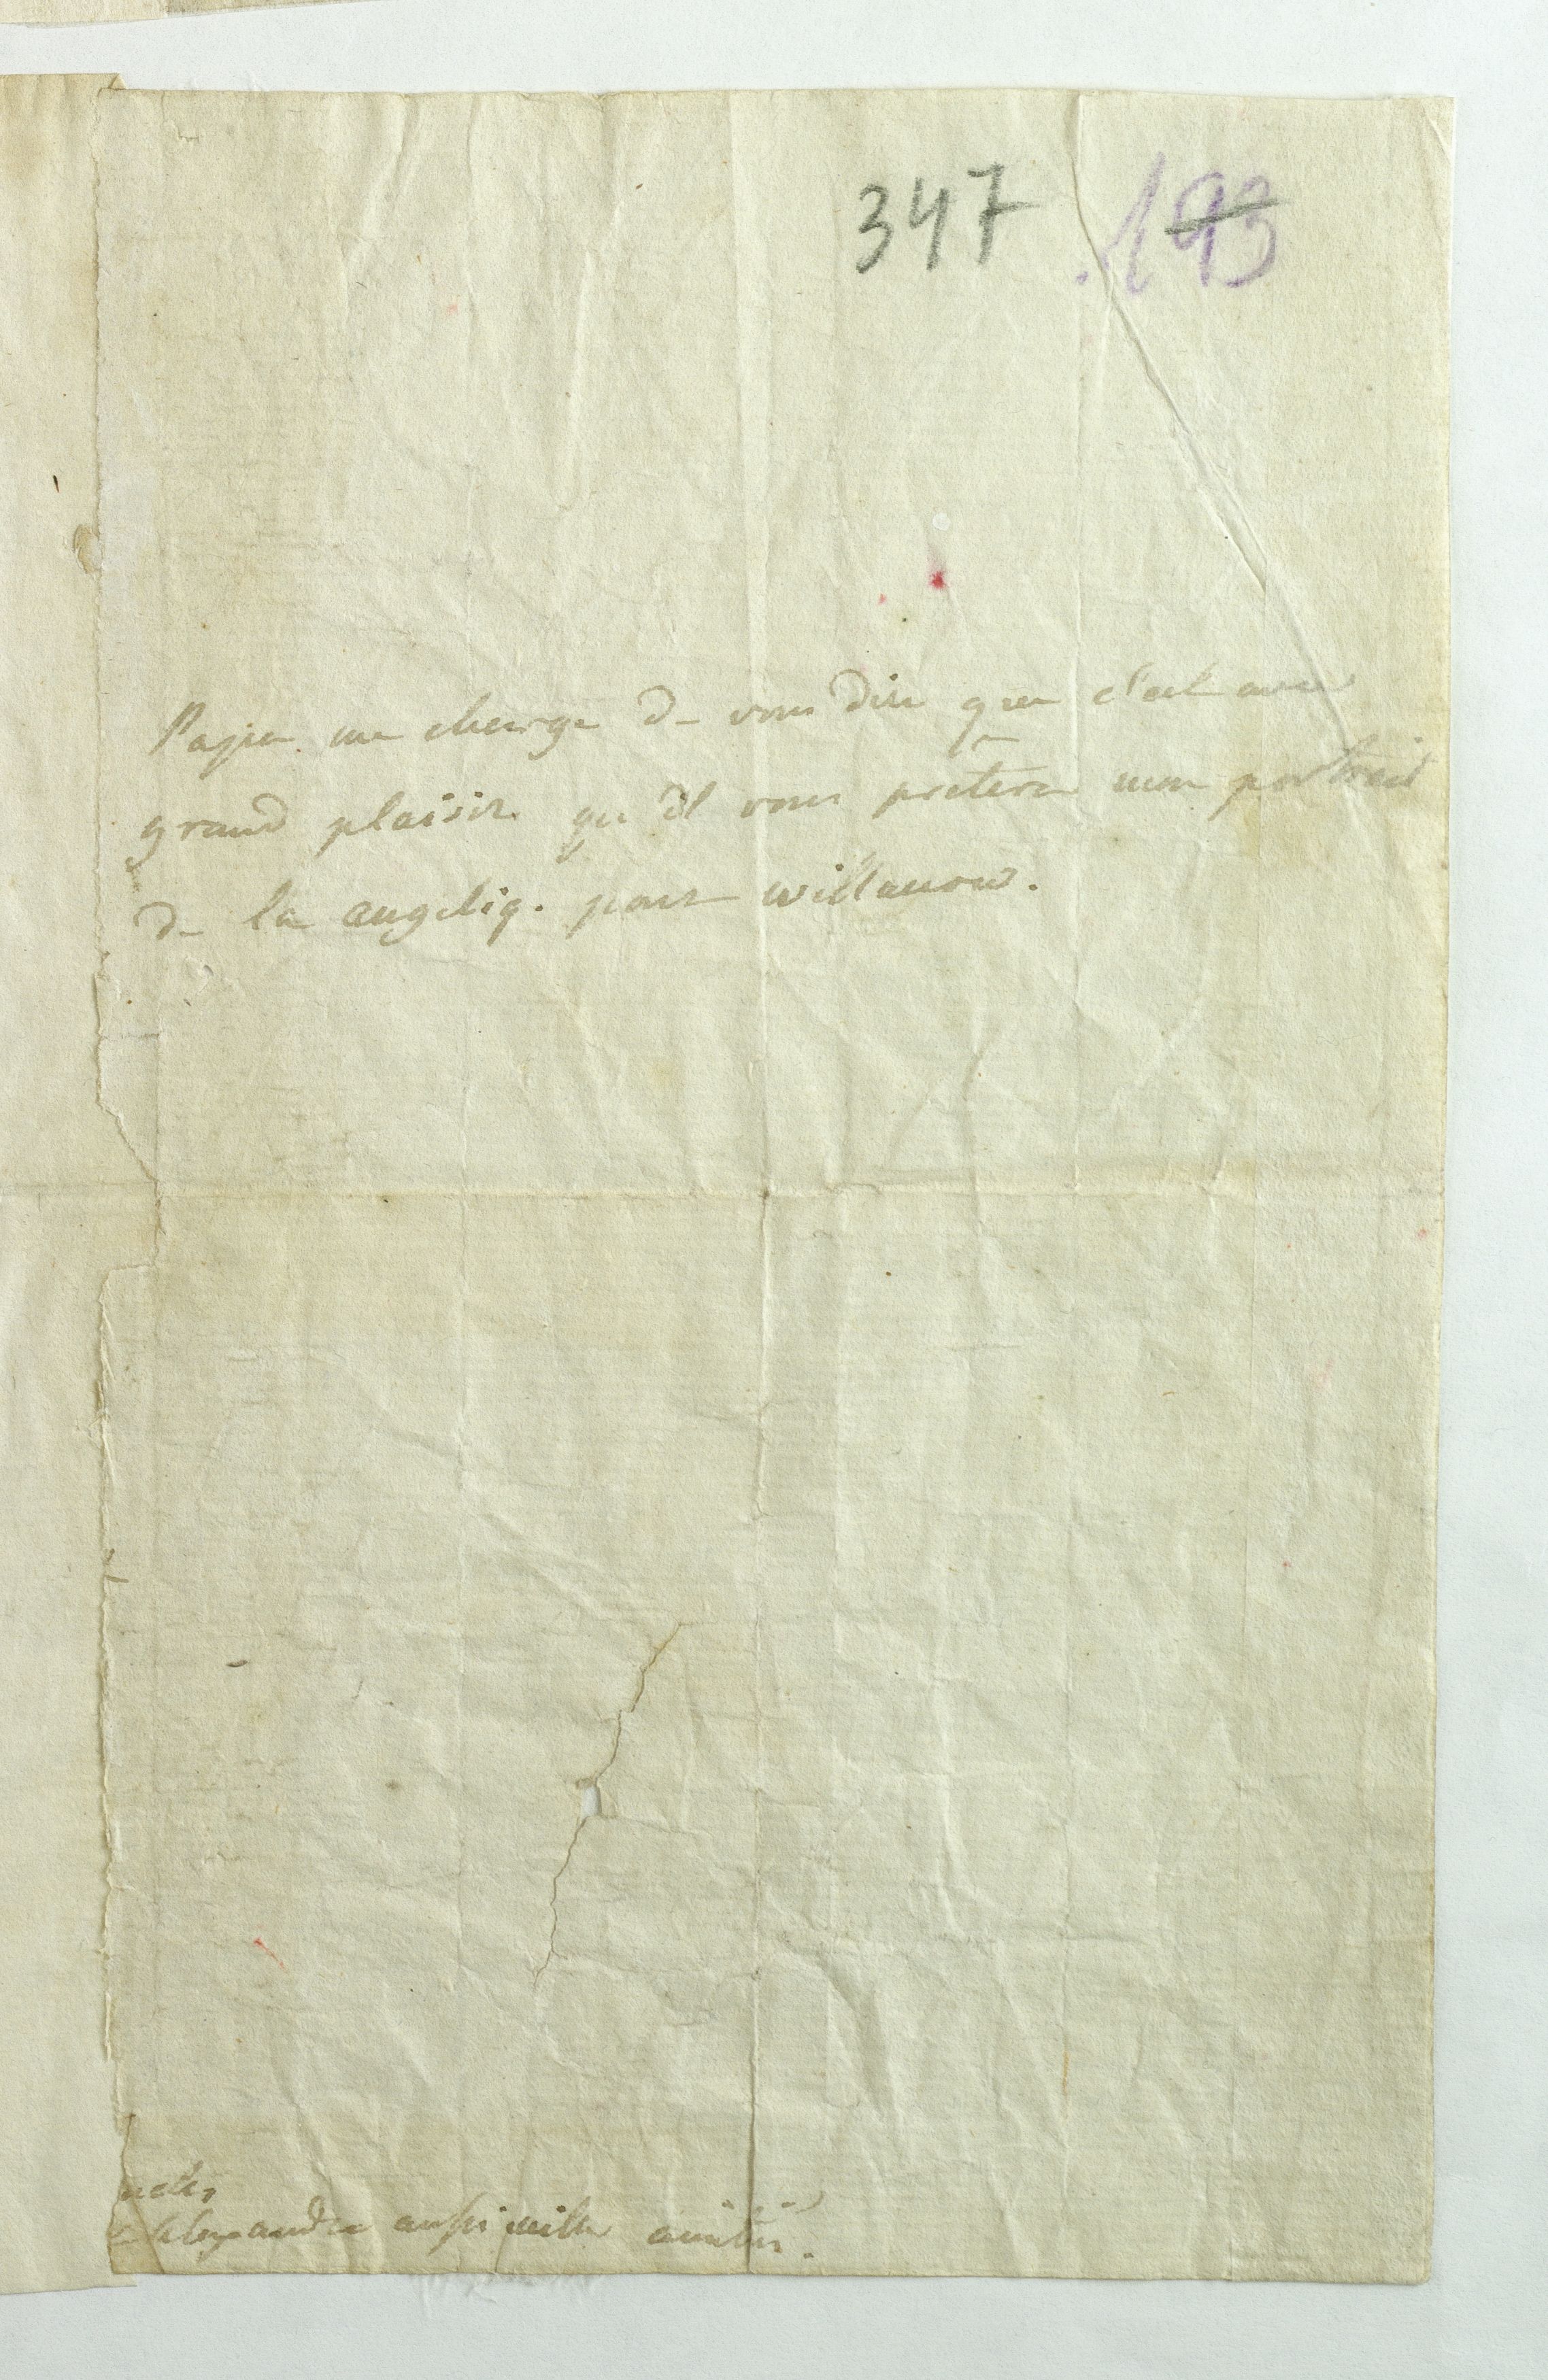 347 193
Papa me charge de vous dire que c'est avec
grand plaisir qu'il vous pretera mon portrait
de la angeliq. pour willanow.
Alexandre aussi mille amitiés.